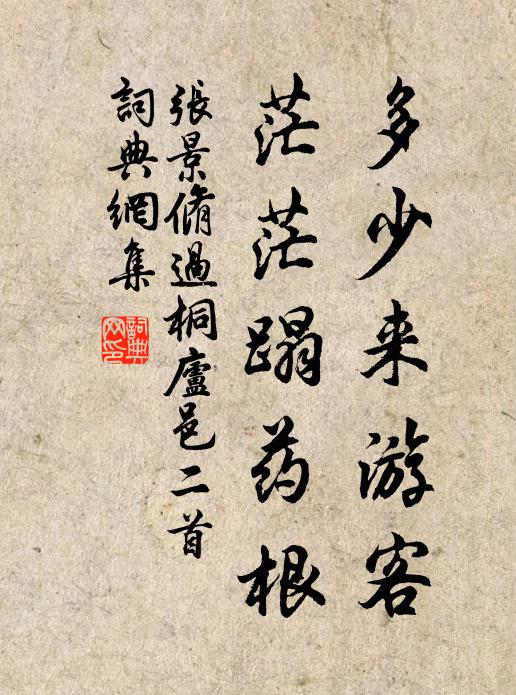 多少来游客
茫茫蹋药根
張景脩過桐廬邑二首
詞典網集
詞典
网印